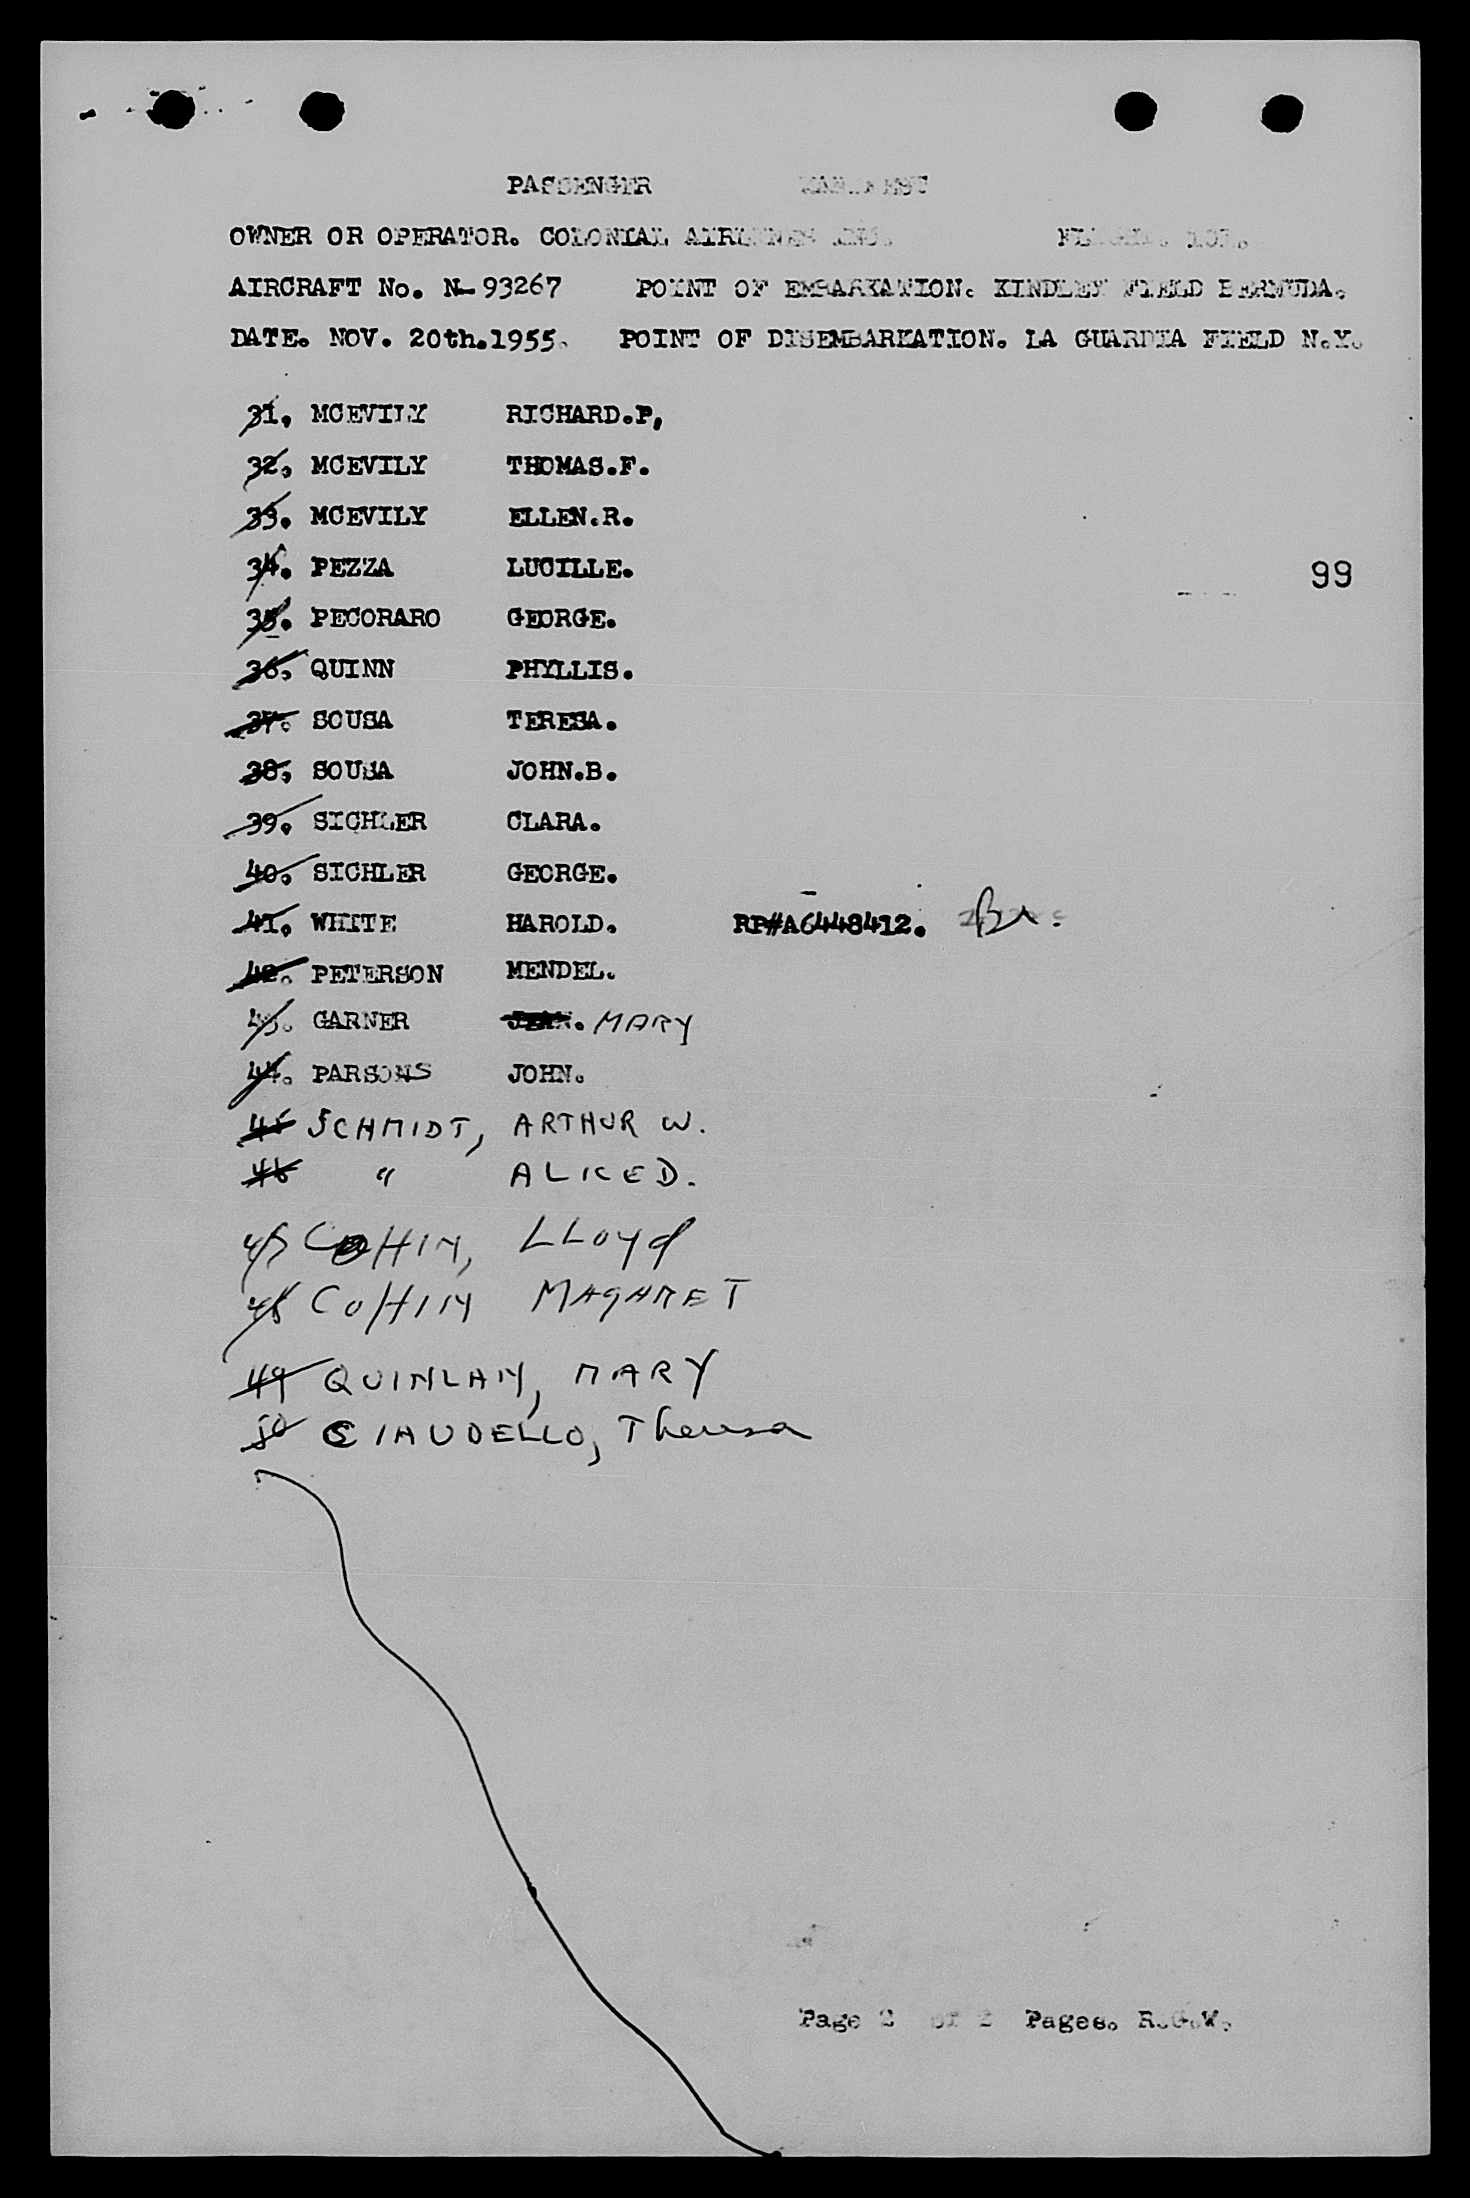 PASSENGER MANIFEST
OWNER OR OPERATOR. COLONIAL AIRLINES INC.
AIRCRAFT No. N-93267 POINT OF EMBARKATION. KINDLEY FIELD BERMUDA.
DATE. NOV. 20th.1955. POINT OF DISEMBARKATION. LA GUARDIA FIELD N.Y.
31. MCEVILY RICHARD.P,
32. MCEVILY THOMAS.F.
33. MCEVILY ELLEN.R.
34. PEZZA LUCILLE.
99
35. PECORARO GEORGE.
36. QUINN PHYLLIS.
37. SOUSA TERESA.
38. SOUSA JOHN.B.
39. SICHLER CLARA.
40. SICHLER GEORGE.
41. WHITE HAROLD. RP#A6448412.
42. PETERSON MENDEL.
43. GARNER JEAN. MARY
44. PARSONS JOHN.
45 SCHMIDT, ARTHUR W.
46 " ALICE D.
47 COHIN, LLOyd
48 COHIN MAGARET
49 QUINLAN, MARY
50 CIAUDELLO, Theresa
Page 2 of 2 Pages. R.G.W.